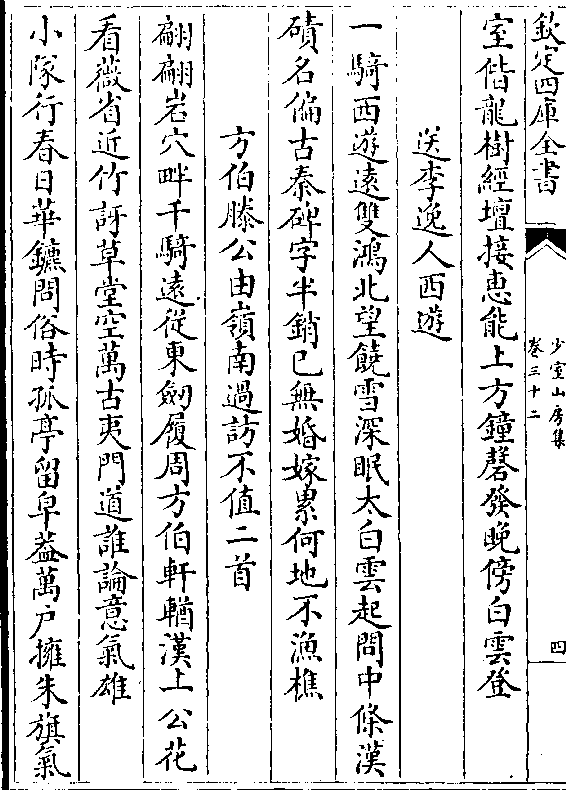 欽定四庫全書
少室山房集
卷三十二
四
室偕龍樹經壇接恵能上方鐘磬發晚傍白雲登
送李逸人西遊
一騎西遊遠雙鴻北望饒雪深眠太白雲起問中條漢
磧名偏古秦碑字半銷已無婚嫁累何地不漁樵
方伯滕公由嶺南過訪不值二首
翩翩岩穴畔千騎遠從東劒履周方伯軒輶漢上公花
看薇省近竹訝草堂空萬古夷門道誰論意氣雄
小隊行春日華鑣問俗時孤亭留皁蓋萬户擁朱旗氣